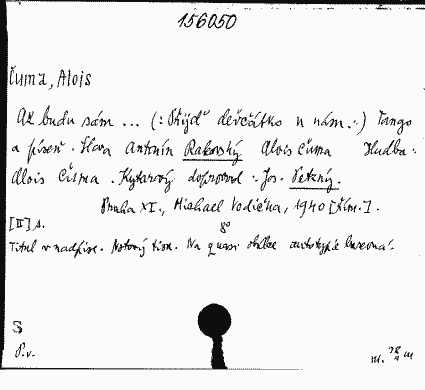 156050
Čuma, Alois
Až budu sám ... (: Přijď děvčátko k nám :) Tango
a píseň. Slova Antonín Rakovský Alois Čuma Hudba:
Alois Čuma. Kytarový doprovod: Jos. Petzný.
Praha XI., Michael Vodička, 1940 [tím.].
[II] s. 8°
Titul v nadpise. Notový tisk. Na quasi obálce autotypie barevná.
S
P.v.
m.